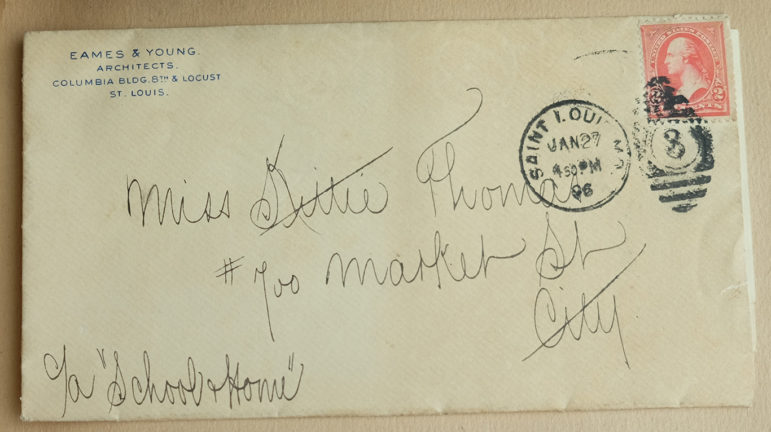 EAMES & YOUNG.
ARCHITECTS.
COLUMBIA BLDG. 8TH & LOCUST
ST. LOUIS.
UNITED STATES POSTAGE
2 CENTS
SAINT LOUIS MO.
JAN 27
4 30 PM
96
3
Miss Kittie Thomas
# 700 Market St
City.
c/a "School & Home"